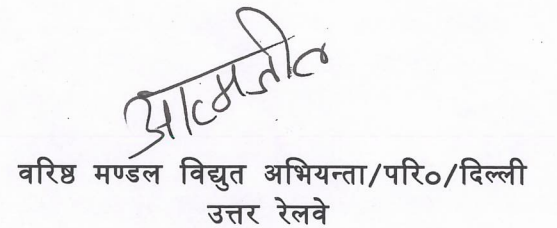 आत्मजीत
वरिष्ठ मण्डल विद्युत अभियन्ता/परि०/दिल्ली
उत्तर रेलवे